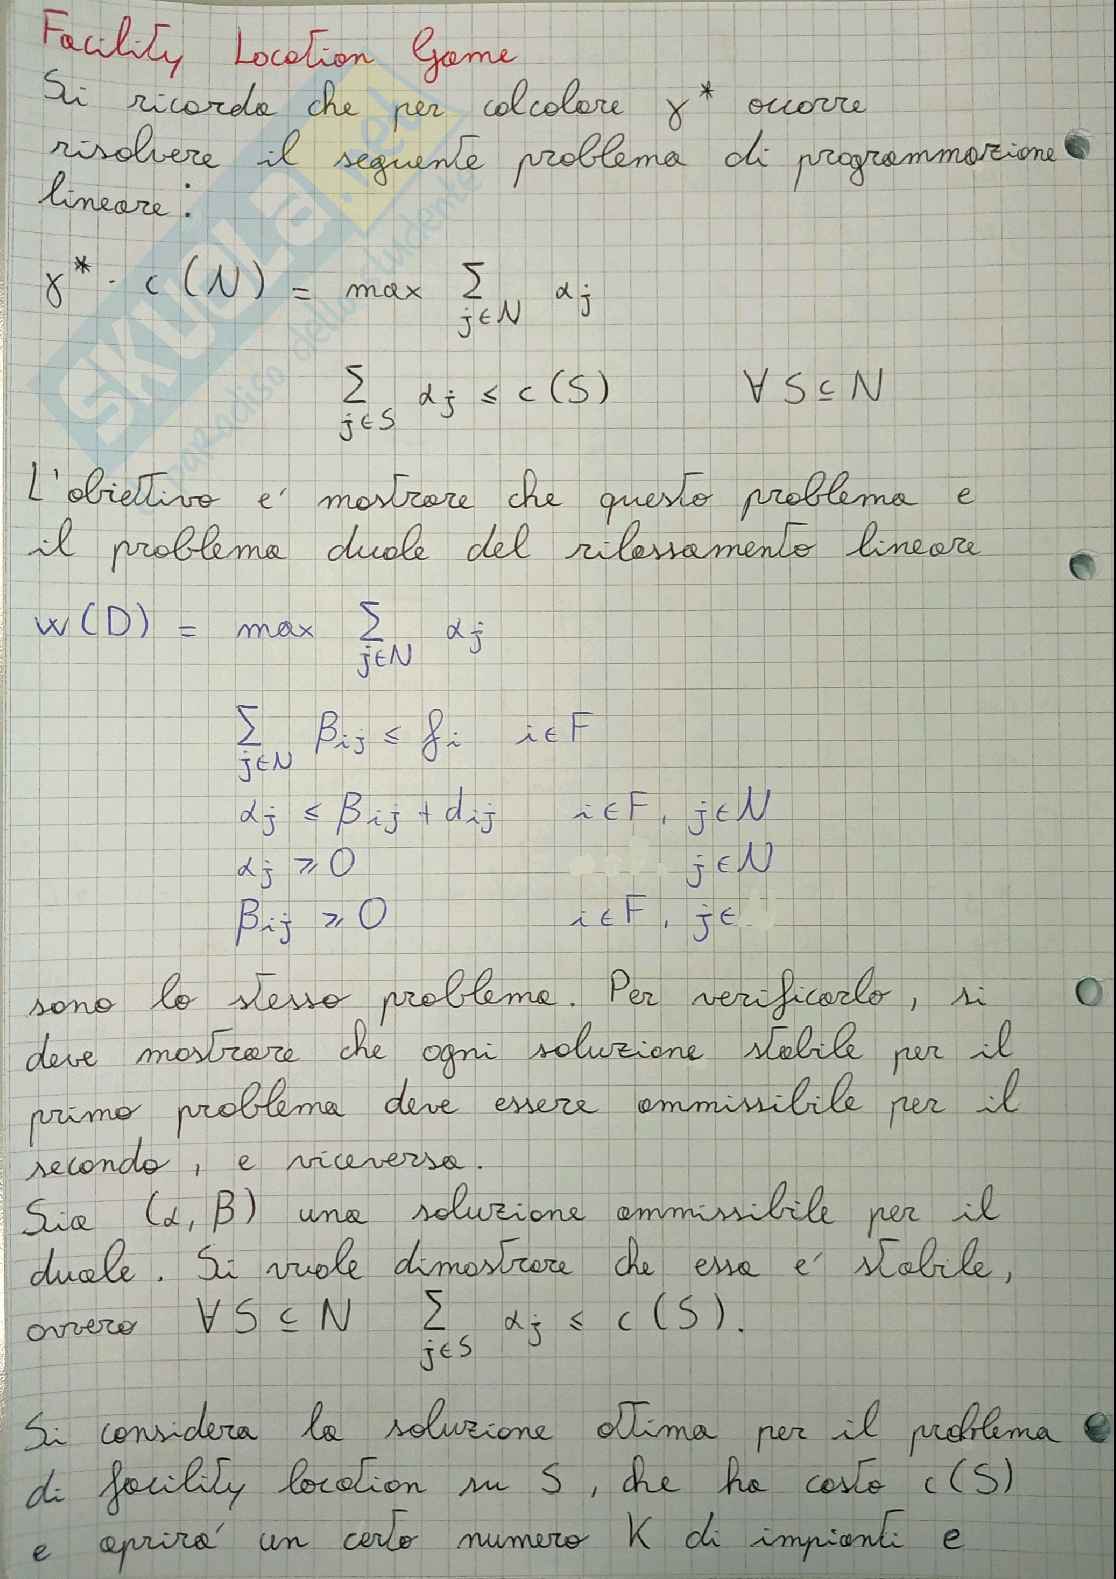 Facility Location Game
Si ricorda che per calcolare γ* occorre
risolvere il seguente problema di programmazione
lineare:
γ* · c(N) = max ∑_{j∈N} αj
∑_{j∈S} αj ≤ c(S) ∀ S ⊆ N
L'obiettivo e' mostrare che questo problema e
il problema duale del rilassamento lineare
w(D) = max ∑_{j∈N} αj
∑_{j∈N} βij ≤ fi i∈F
αj ≤ βij + dij i∈F, j∈N
αj ≥ 0 j∈N
βij ≥ 0 i∈F, j∈
sono lo stesso problema. Per verificarlo, si
deve mostrare che ogni soluzione stabile per il
primo problema deve essere ammissibile per il
secondo, e viceversa.
Sia (α, β) una soluzione ammissibile per il
duale. Si vuole dimostrare che essa e' stabile,
ovvero ∀ S ⊆ N ∑_{j∈S} αj ≤ c(S).
Si considera la soluzione ottima per il problema
di facility location su S, che ha costo c(S)
e aprira' un certo numero K di impianti e
SKUOLA.net
paradiso dello studente